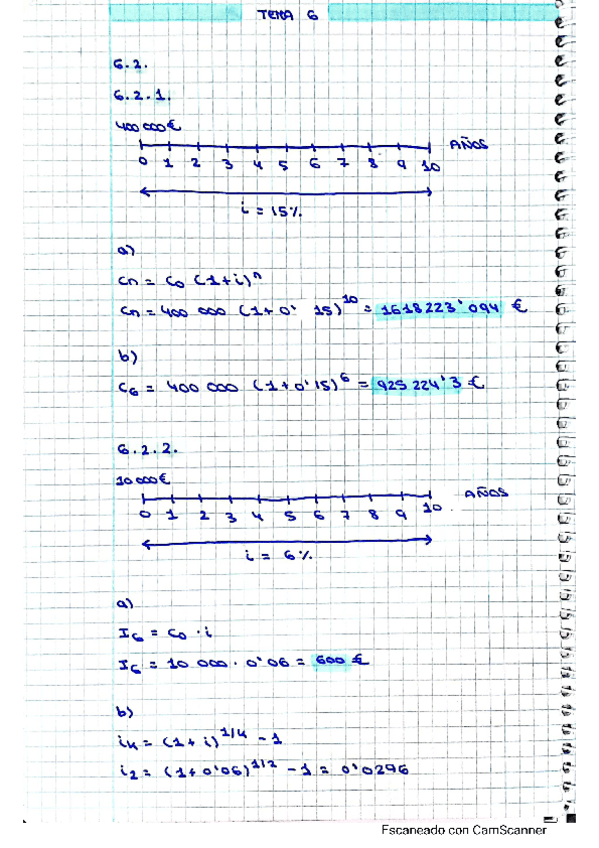 TEMA 6
6.2.
6.2.1.
400 000€
AÑOS
0 1 2 3 4 5 6 7 8 9 10
i = 15%
a)
Cn = Co (1+i)^n
Cn = 400 000 (1+0'15)^10 = 1618223'094 €
b)
C6 = 400 000 (1+0'15)^6 = 925 224'3 €
6.2.2.
10 000€
AÑOS
0 1 2 3 4 5 6 7 8 9 10
i = 6%
a)
I6 = Co · i
I6 = 10 000 · 0'06 = 600 €
b)
ik = (1+i)^1/k - 1
i2 = (1+0'06)^1/2 - 1 = 0'0296
Escaneado con CamScanner